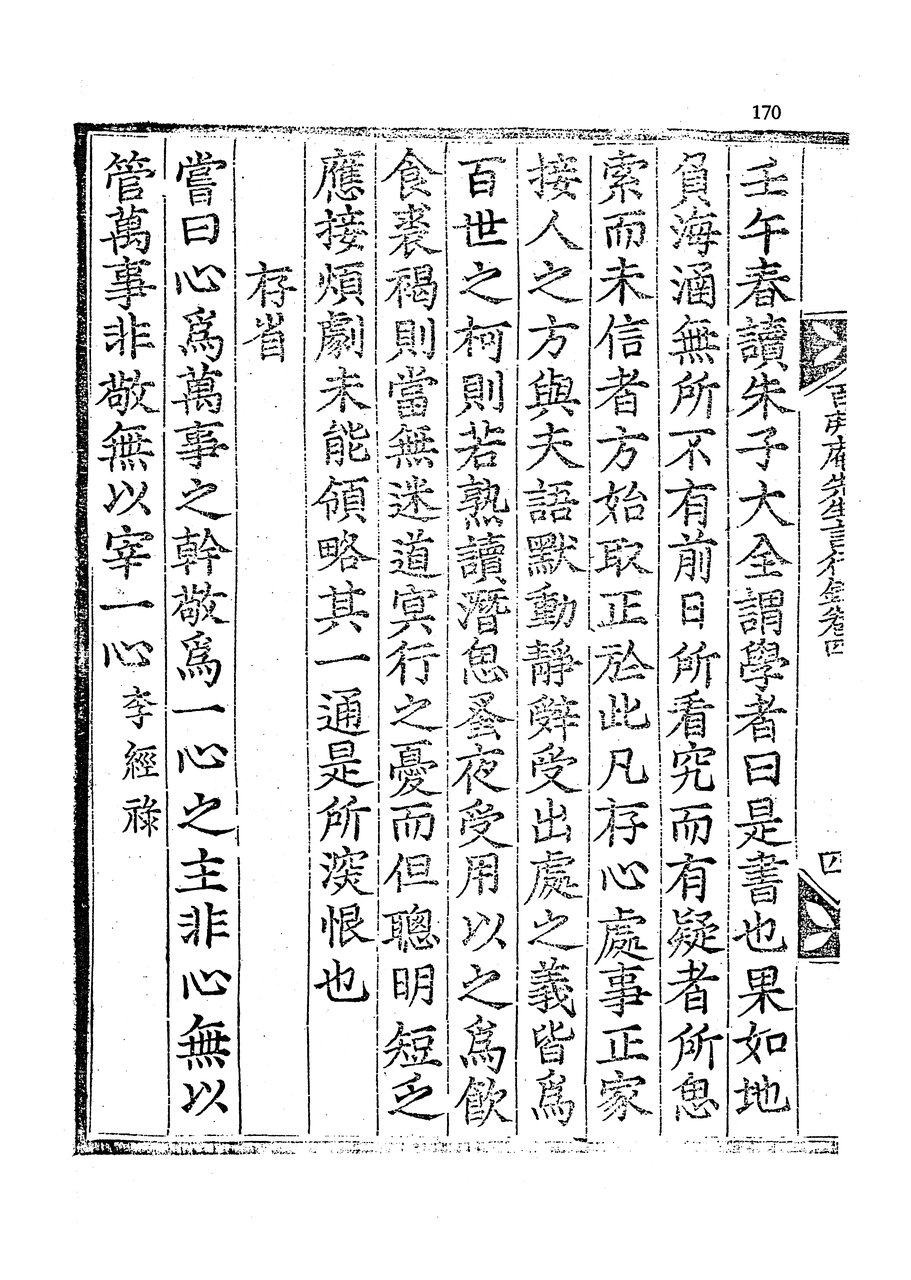 170
百弗庵先生言行錄卷四
四
壬午春讀朱子大全謂學者曰是書也果如地
負海涵無所不有前日所看究而有疑者所思
索而未信者方始取正於此凡存心處事正家
接人之方與夫語默動靜辤受出處之義皆爲
百世之柯則若熟讀潛思蚤夜受用以之爲飮
食裘褐則當無迷道冥行之憂而但聰明短乏
應接煩劇未能領略其一通是所深恨也
存省
嘗曰心爲萬事之幹敬爲一心之主非心無以
管萬事非敬無以宰一心 李經祿